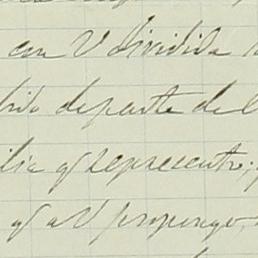 con V dividida
bido departe del
ilia q represento;
q a V propongo,